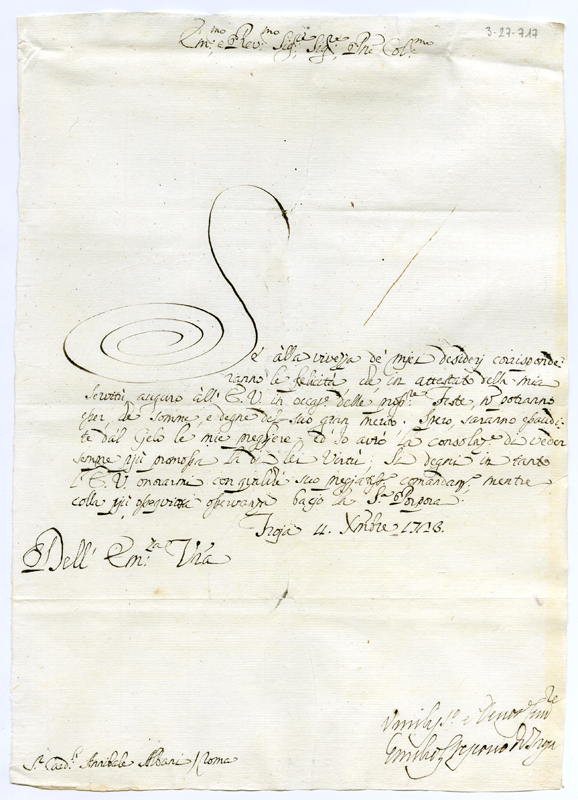 Em.mo e Rev.mo Sig.re Sig.re Pne Col.mo
3-27-717
Se àlla vivezza de miei desiderj corrisponde-
ranno le felicità che in attestato della mia
servitù auguro àll' E. V. in occas.e delle pros.me feste nõ potranno
esser che somme, e degne del suo gran merito. Spero saranno esaudi-
te dal Cielo le mie preghiere, ed io avrò la consolaz.e di veder
sempre più promossa la di lei Virtù; Si degni in tanto
l'E. V. onorarmi con qualche suo pregiatiss.o comandam.to mentre
colla più ossequiosa osservanza bacio la S.a Porpora
Troja 4. Xmbre 1718.
Dell' Em.za Vr̃a
S.r Card.l Annibale Albani / Roma
Umiliss.o e
Emilio Vescovo di Troja